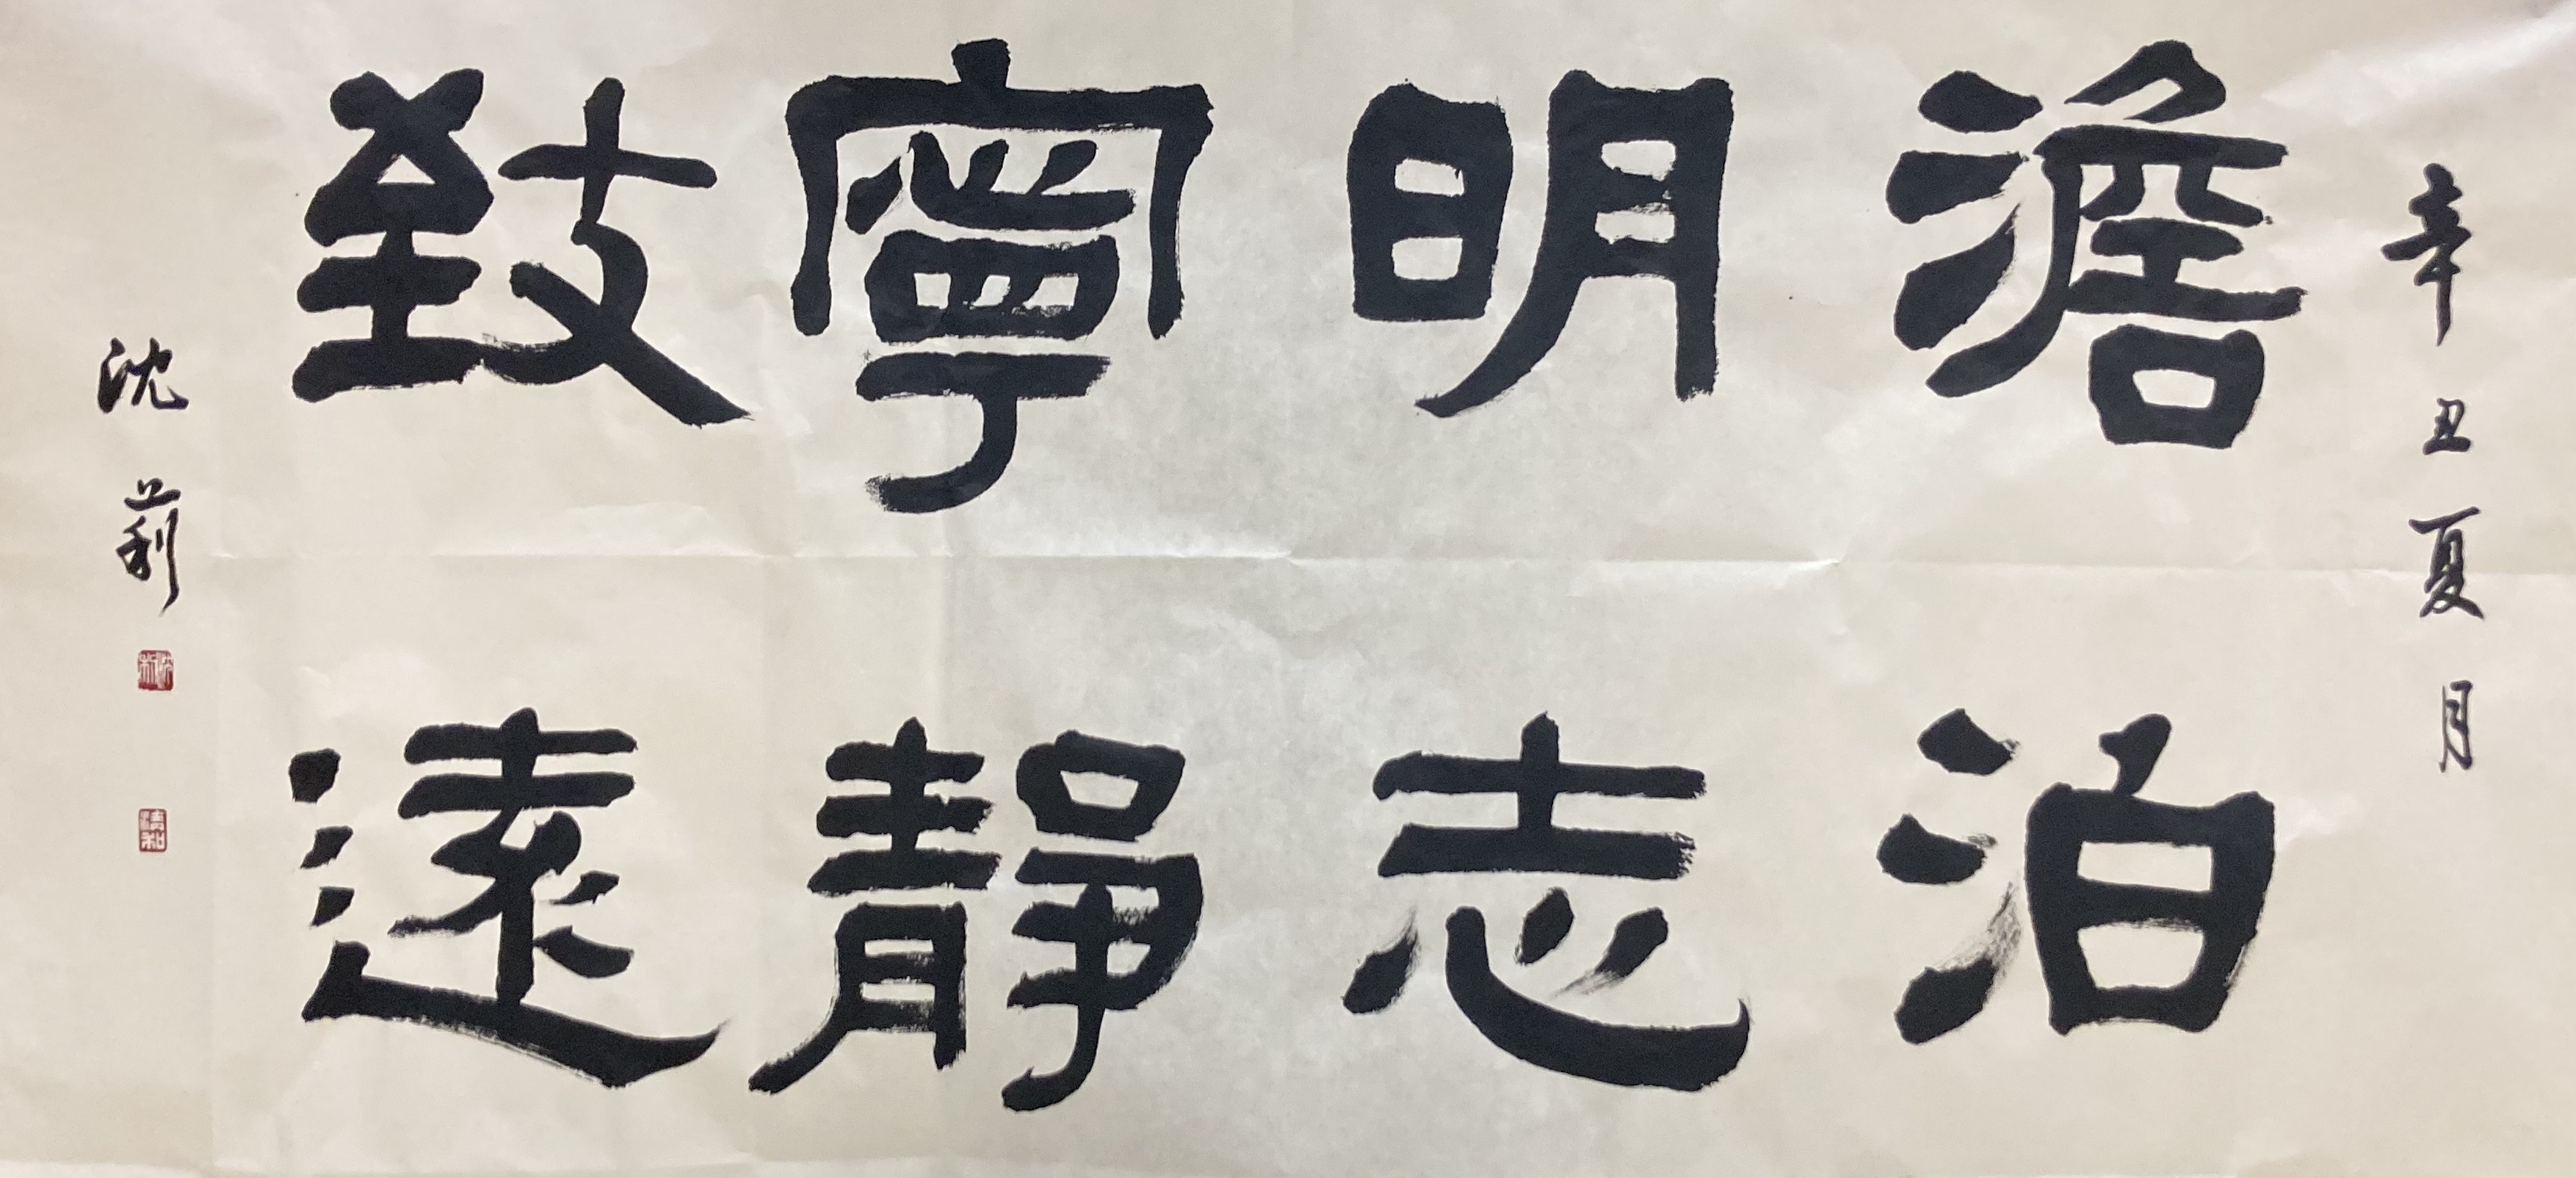 辛丑夏月
澹泊
明志
寧靜
致遠
沈莉